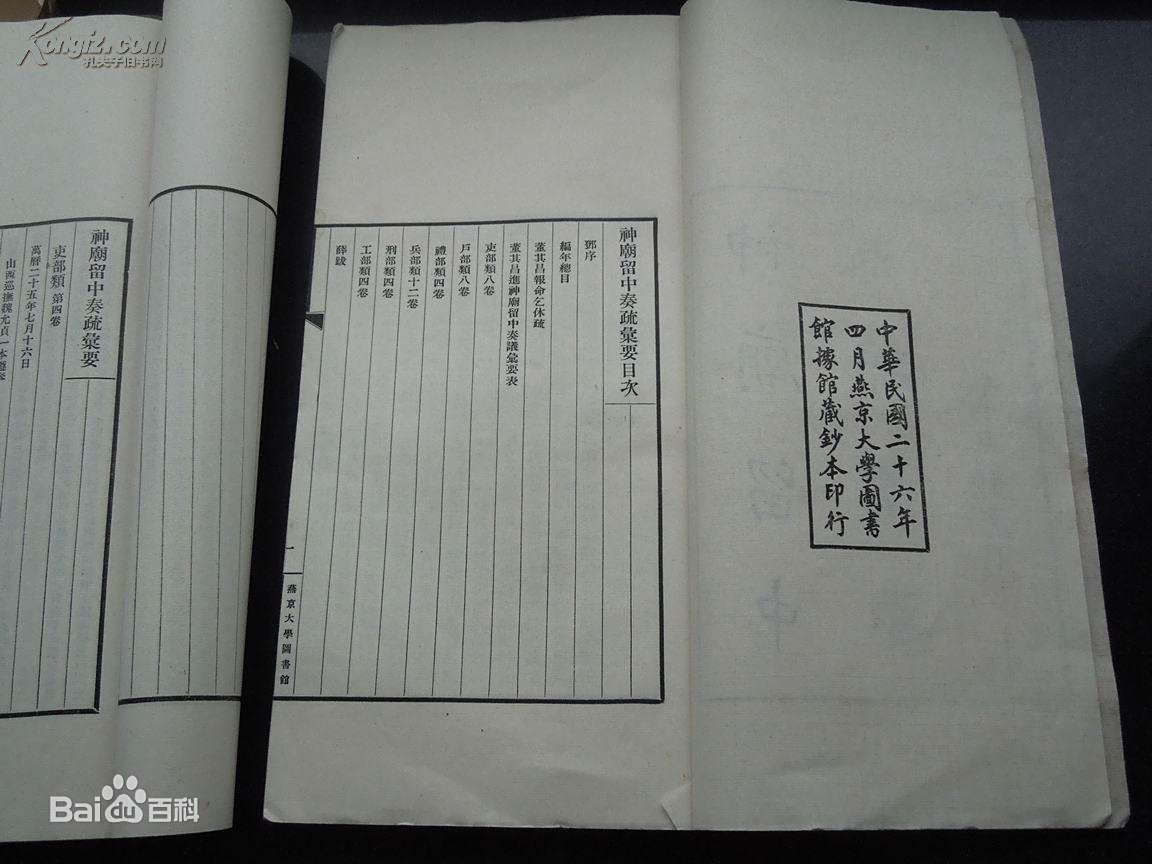 中華民國二十六年
四月燕京大學圖書
館據館藏鈔本印行
神廟留中奏疏彙要目次
鄧序
編年總目
董其昌報命乞休疏
董其昌進神廟留中奏議彙要表
吏部類八卷
戶部類八卷
禮部類四卷
兵部類十二卷
刑部類四卷
工部類四卷
薛跋
一
燕京大學圖書館
神廟留中奏疏彙要
吏部類 第四卷
萬曆二十五年七月十六日
山西巡撫魏允貞一本
Kongfz.com
孔夫子旧书网
Baidu百科